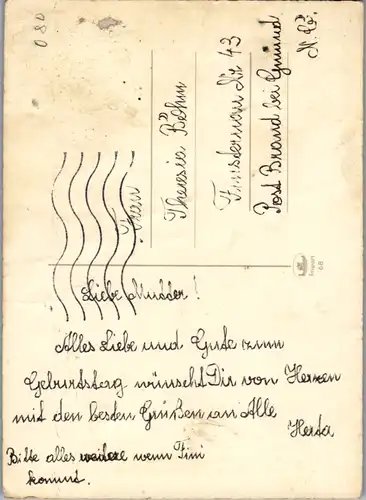 Frau
Theresia Böhm
Finsternau Nr 43
Post Brand bei Gmünd
N. Ö.
Liebe Mutter!
Alles Liebe und Gute zum
Geburtstag wünscht Dir von Herzen
mit den besten Grüßen an Alle
Herta
Bitte alles weitere wenn Fini
kommt.